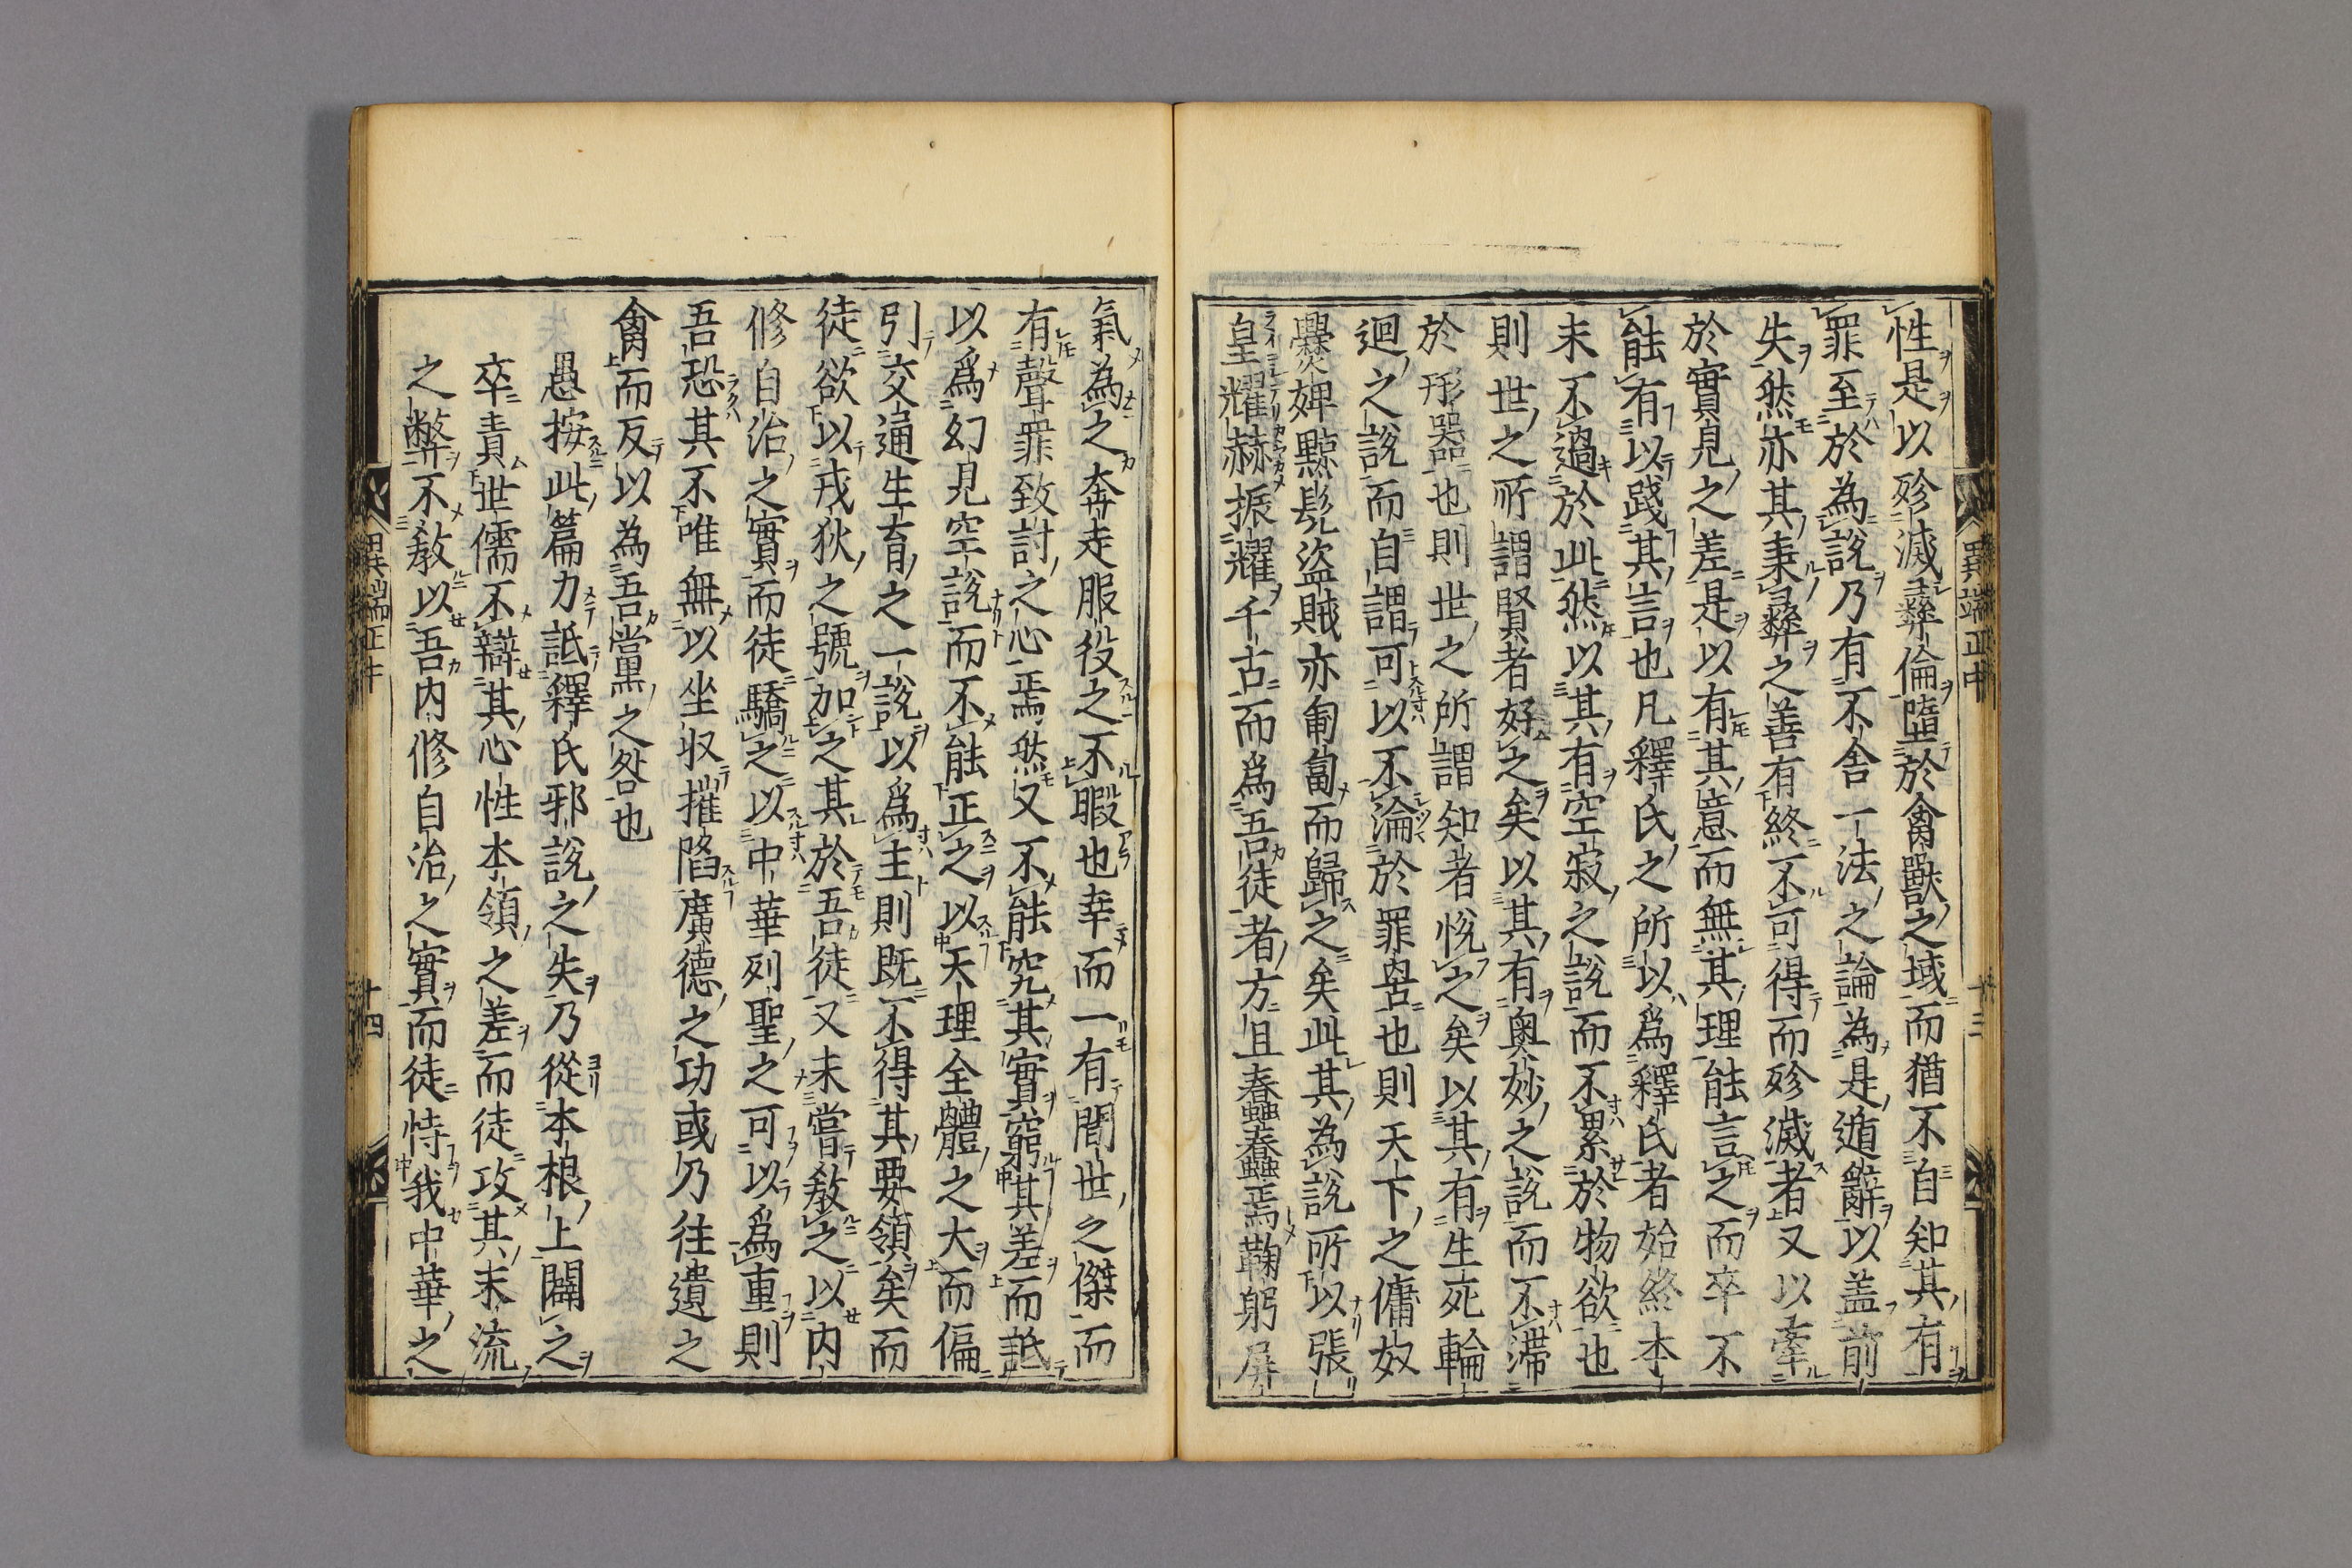 性是以殄滅彝倫墮於禽獸之域而猶不自知其有
罪至於為說乃有不舍一法之論為是遁辭以盖前
失然亦其秉彝之善有終不可得而殄滅者又以牽
於實見之差是以有其意而無其理能言之而卒不
能有以踐其言也凡釋氏之所以為釋氏者始終本
末不過於此然以其有空寂之說而不累於物欲也
則世之所謂賢者好之矣以其有奥妙之說而不滯
於形器也則世之所謂知者悅之矣以其有生死輪
迴之說而自謂可以不淪於罪罟也則天下之傭奴
爨婢黥髡盜賊亦匍匐而歸之矣此其為說所以張
皇耀赫振耀千古而爲吾徒者方且蠢蠢焉鞠躬屏
異端正中
十三
氣為之奔走服役之不暇也幸而一有間世之傑而
有聲罪致討之心焉然又不能究其實窮其差而詆
以爲幻見空說而不能正之以天理全體之大而偏
引交通生育之一說以爲主則既不得其要領矣而
徒欲以戎狄之號加之其於吾徒又未嘗敎之以内
修自治之實而徒驕之以中華列聖之可以爲重則
吾恐其不唯無以坐収摧陷廣德之功或乃往遺之
禽而反以為吾黨之咎也
愚按此篇力詆釋氏邪說之失乃從本根上闢之
卒責世儒不辯其心性本領之差而徒攻其末流
之弊不敎以吾内修自治之實而徒恃我中華之
異端正中
十四